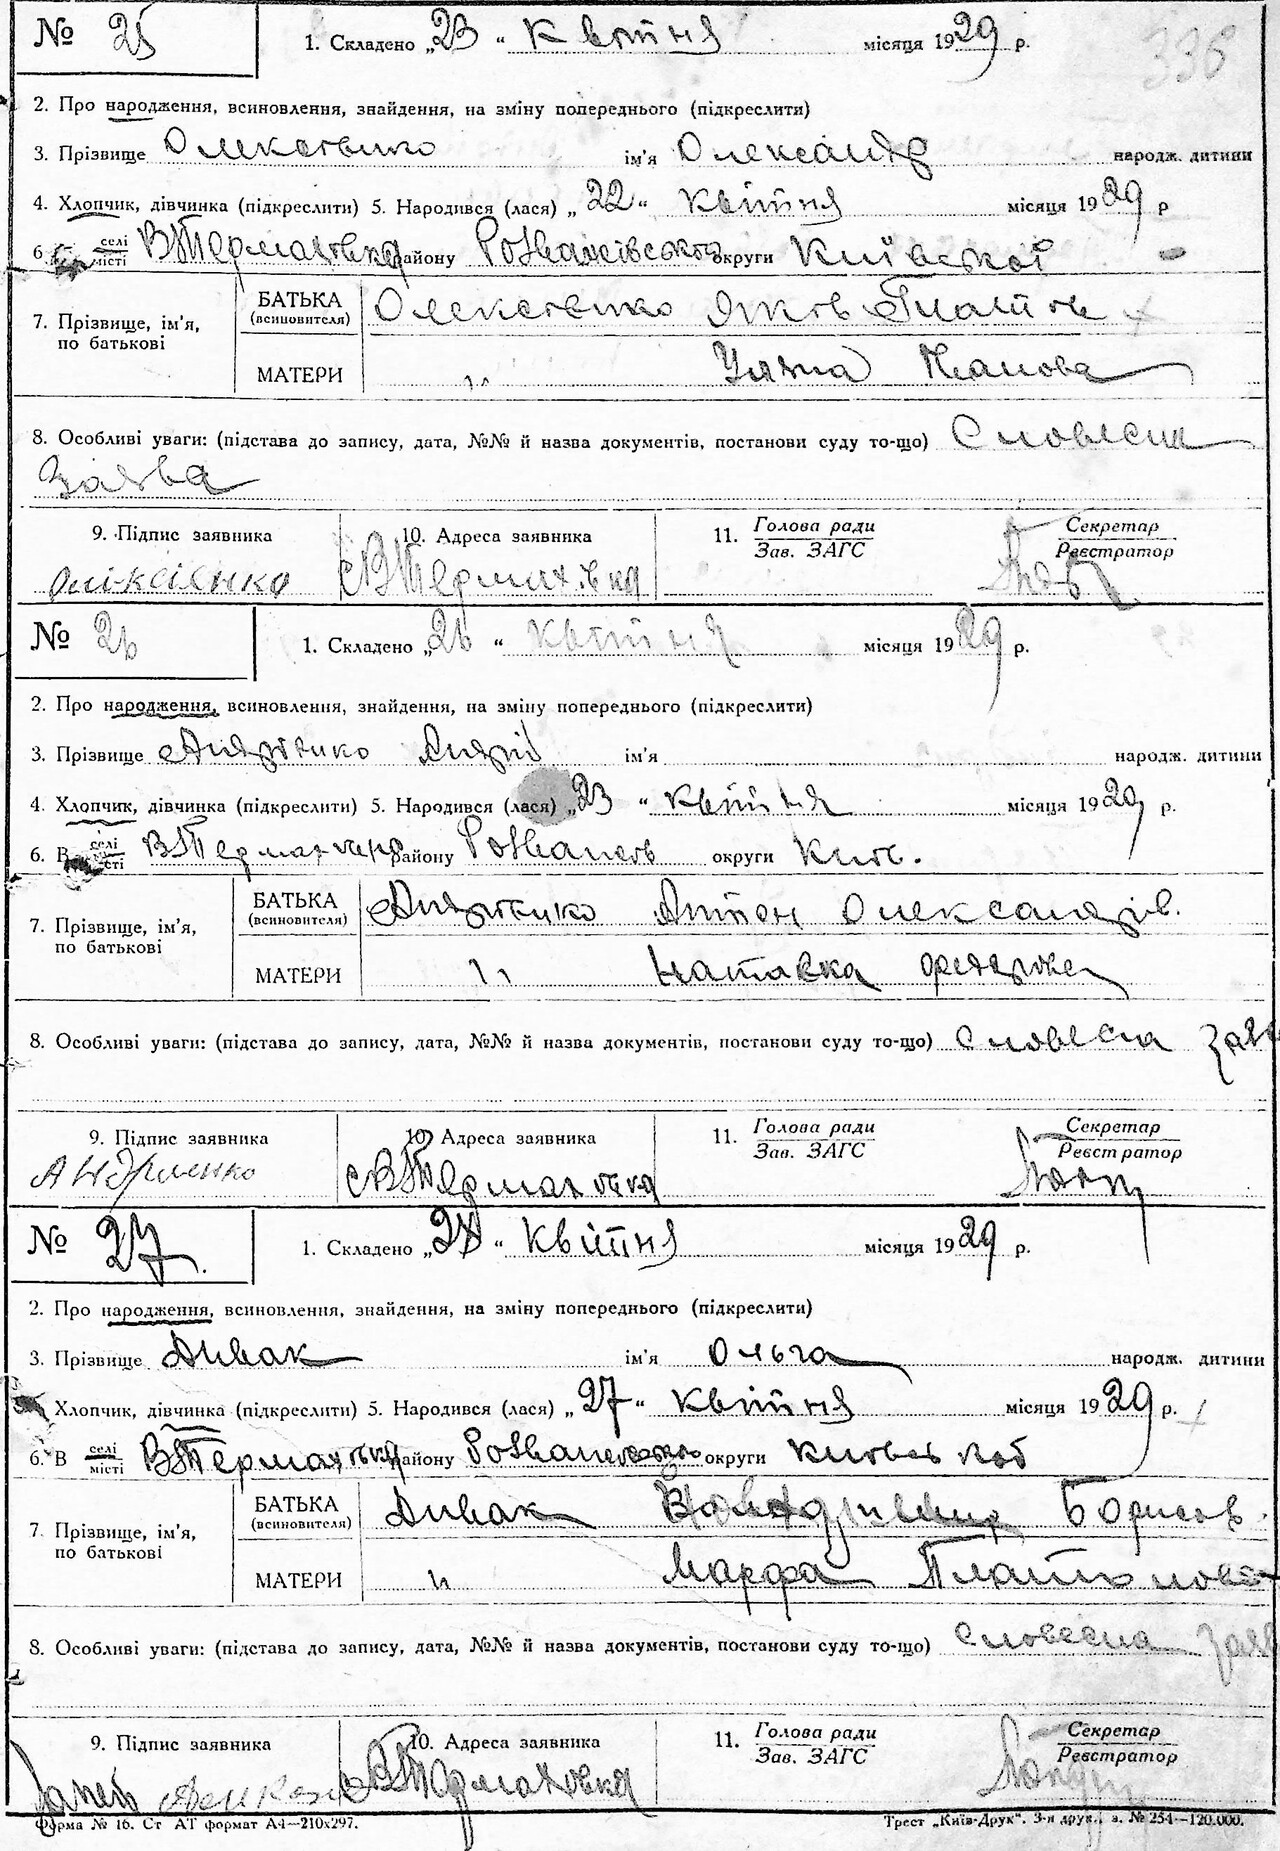 № 25 1. Складено „23“ квітня місяця 1929 р. 336
2. Про народження, всиновлення, знайдення, на зміну попереднього (підкреслити)
3. Прізвище Олексієнко ім'я Олександр народж. дитини
4. Хлопчик, дівчинка (підкреслити) 5. Народився (лася) „22“ квітня місяця 1929 р
6. селі місті В Термахівка району Розважівського округи Київської
7. Прізвище, ім'я, по батькові БАТЬКА (всиновителя) Олексієнко Яків Платон
МАТЕРИ „ Уляна
8. Особливі уваги: (підстава до запису, дата, №№ й назва документів, постанови суду то-що) Словесна
Заява
9. Підпис заявника 10. Адреса заявника 11. Голова ради Зав. ЗАГС Секретар Реєстратор
Оліксіенко с В Термахівка
№ 26 1. Складено „26“ квітня місяця 1929 р.
2. Про народження, всиновлення, знайдення, на зміну попереднього (підкреслити)
3. Прізвище Андрієнко Андрій ім'я народж. дитини
4. Хлопчик, дівчинка (підкреслити) 5. Народився (лася) „23“ квітня місяця 1929 р.
6. В селі місті В Термахівка району Розважів округи Київ.
7. Прізвище, ім'я, по батькові БАТЬКА (всиновителя) Андрієнко Антон Олександрів.
МАТЕРИ „ Наталка
8. Особливі уваги: (підстава до запису, дата, №№ й назва документів, постанови суду то-що) Словесна заява
9. Підпис заявника 10. Адреса заявника 11. Голова ради Зав. ЗАГС Секретар Реєстратор
Андрієнко с В Термахівка
№ 27. 1. Складено „28“ квітня місяця 1929 р.
2. Про народження, всиновлення, знайдення, на зміну попереднього (підкреслити)
3. Прізвище Дивак ім'я Ольга народж. дитини
Хлопчик, дівчинка (підкреслити) 5. Народився (лася) „27“ квітня місяця 1929 р.
6. В селі місті В Термахівка району Розважівського округи
7. Прізвище, ім'я, по батькові БАТЬКА (всиновителя) Дивак Борисов.
МАТЕРИ „ Марфа Платонова
8. Особливі уваги: (підстава до запису, дата, №№ й назва документів, постанови суду то-що) Словесна заяв
9. Підпис заявника 10. Адреса заявника 11. Голова ради Зав. ЗАГС Секретар Реєстратор
В Термахівка
Форма № 16. Ст АТ формат А4—210x297. Трест „Київ-Друк“. 3-я друк., з. № 254—120.000.